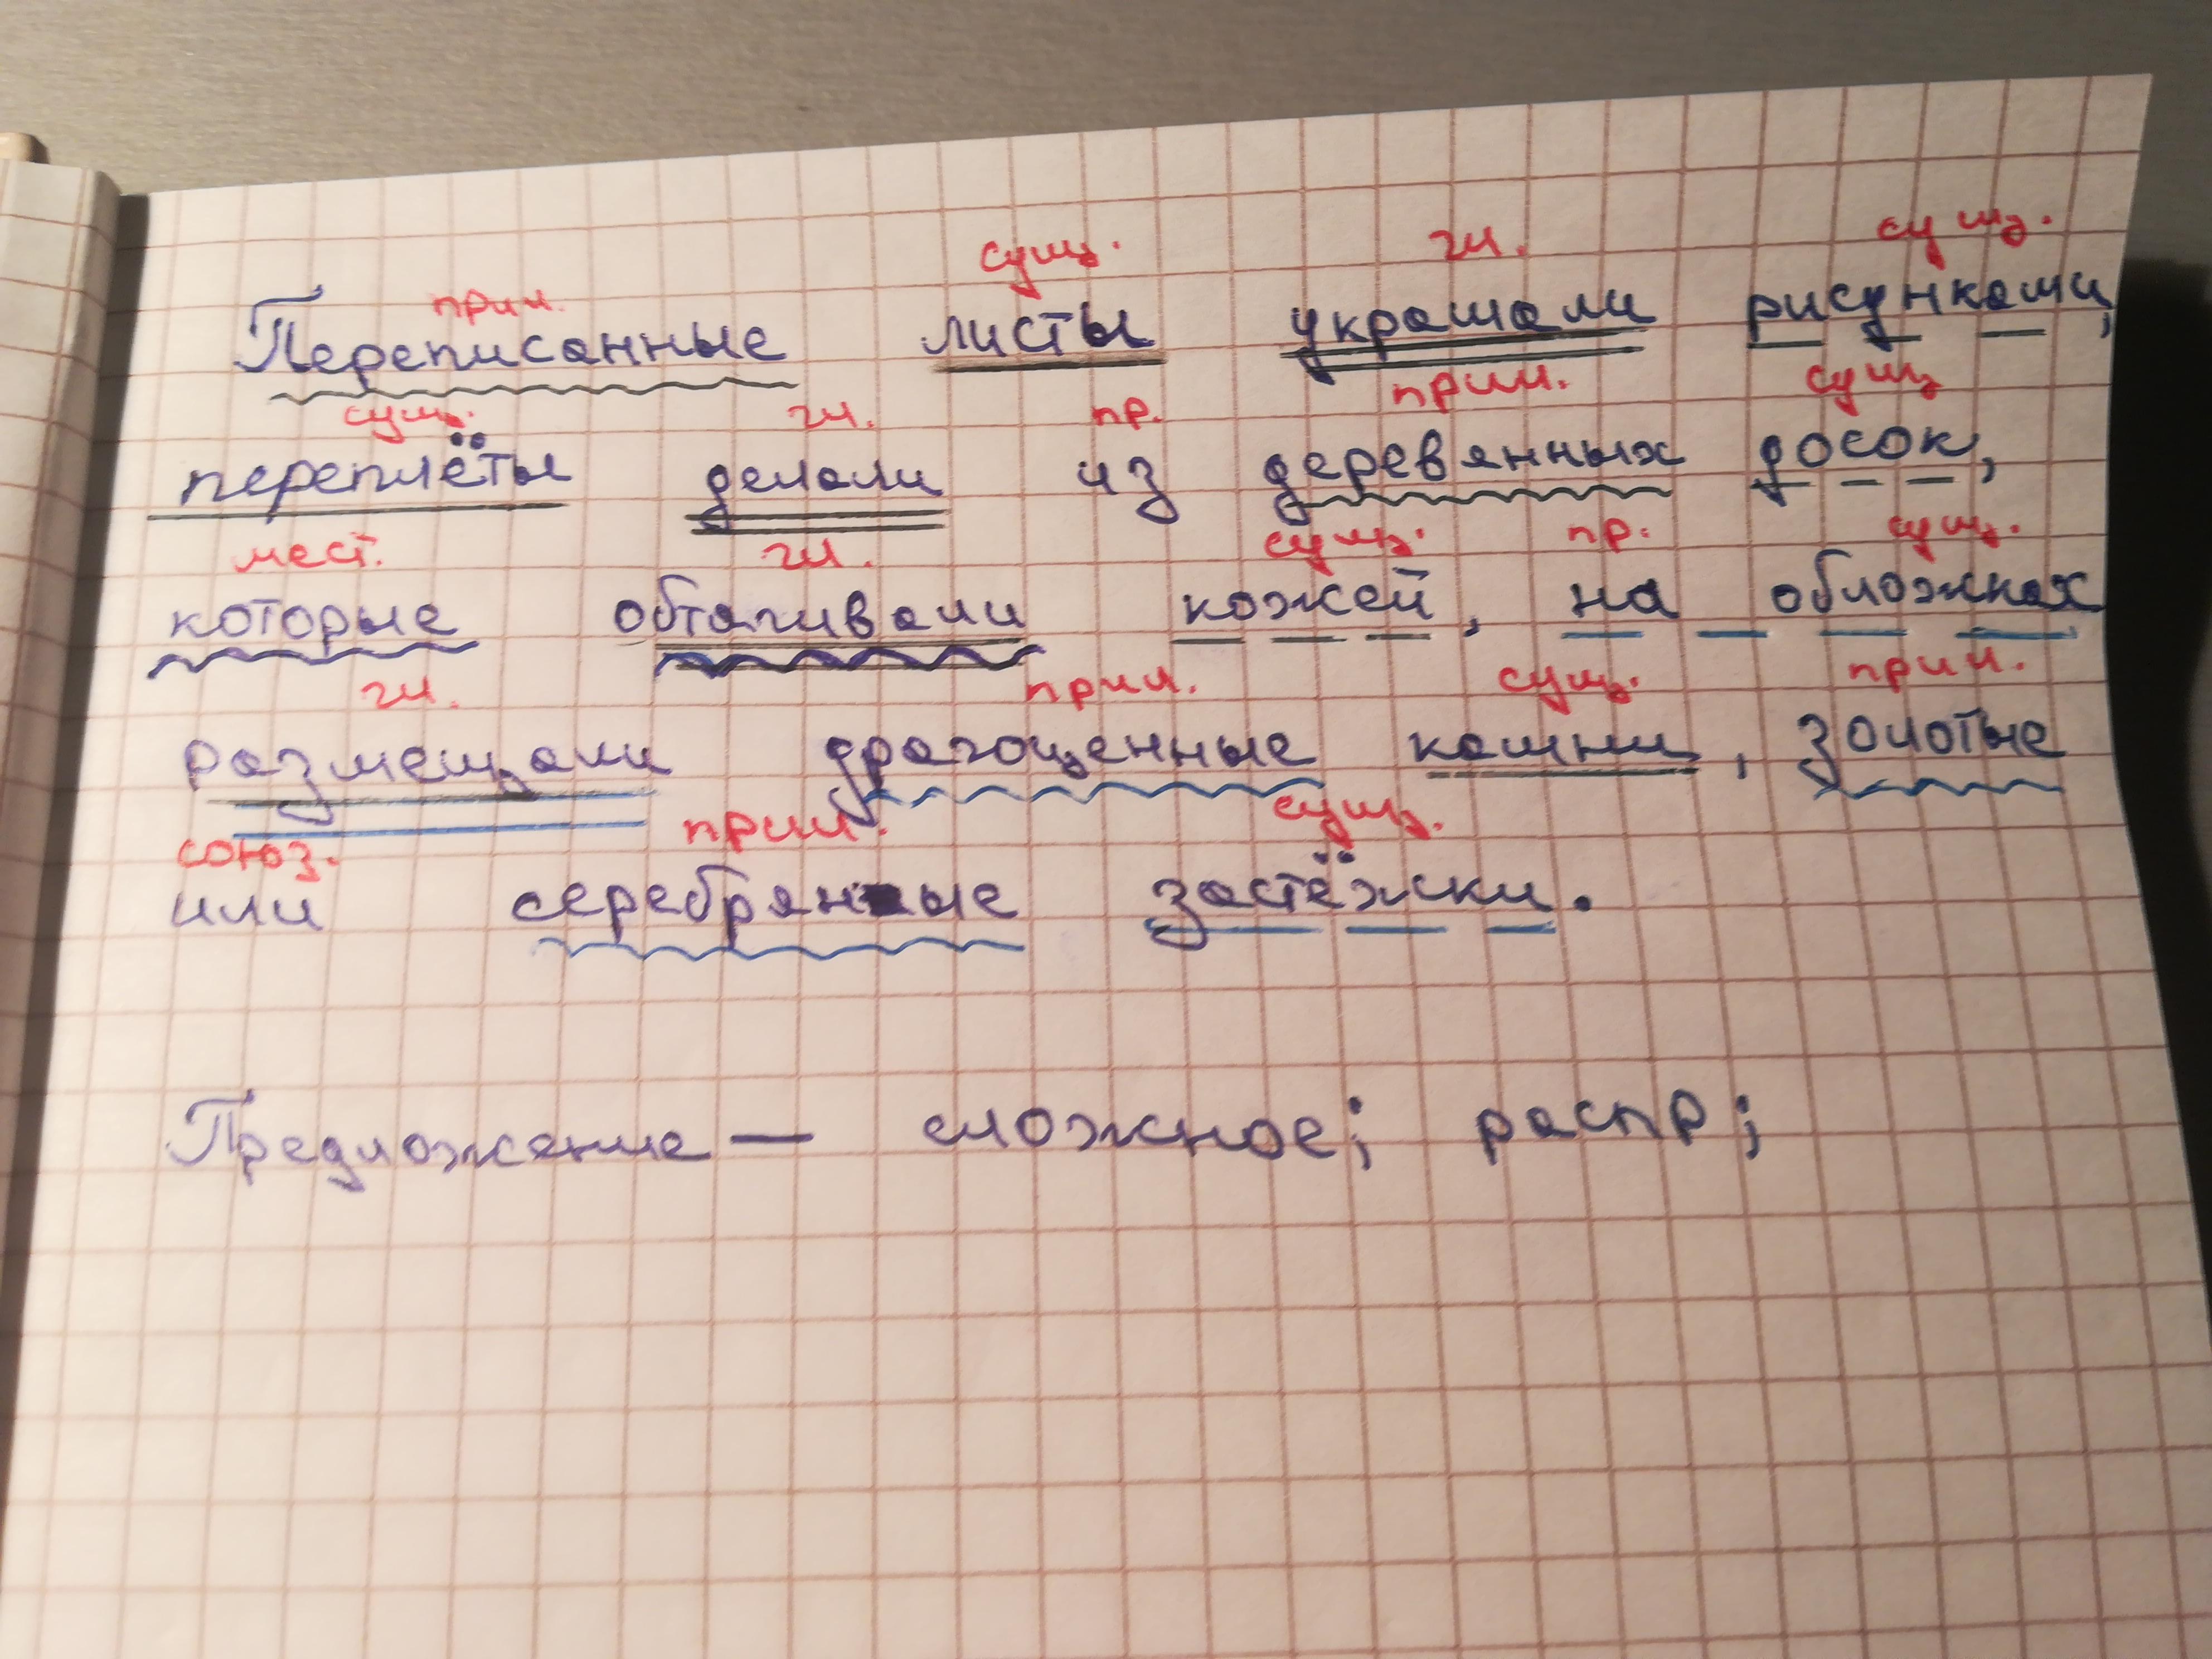 сущ. гл. сущ.
прил.
Переписанные листы украшали рисунками,
сущ. гл. пр. прил. сущ
переплёты делали из деревянных досок,
мест. гл. сущ. пр. сущ.
которые обтягивали кожей, на обложках
гл. прил. сущ. прил.
размещали драгоценные камни, золотые
союз. прил. сущ.
или серебряные застёжки.
Предложение — сложное; распр;